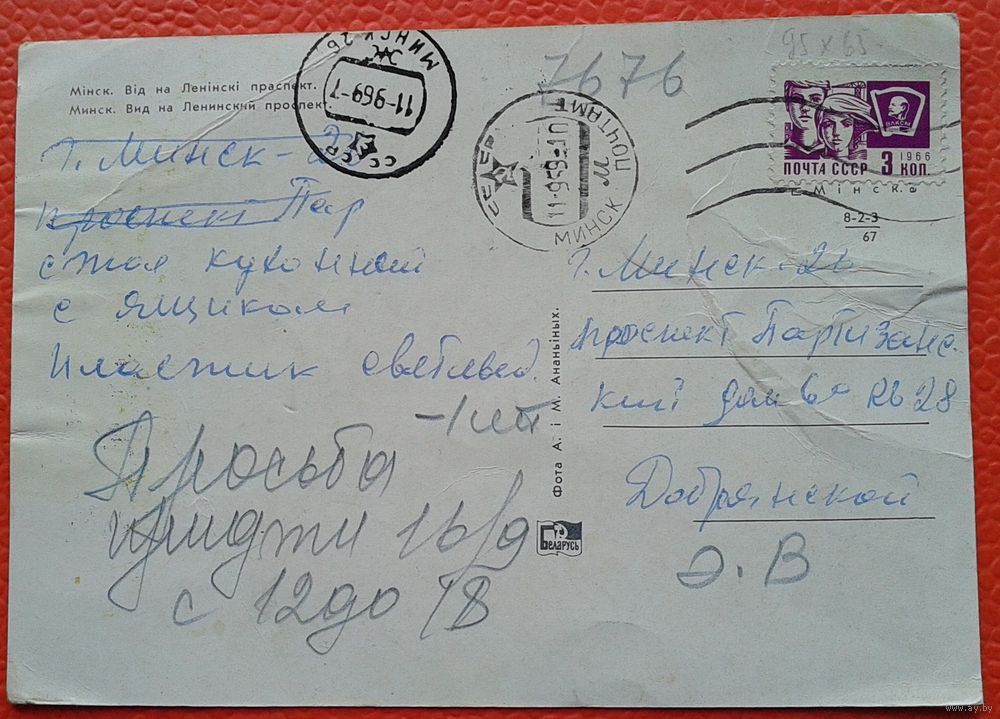 Мінск. Від на Ленінскі праспект.
Минск. Вид на Ленинский проспект.
г. Минск-26
проспект Пар
стол кухонный
с ящиком
пластик светлый
-1 шт
Просьба
прийти 16/9
с 12 до 18
МИНСК 26
Ж
11-969-7
СССР
7676
СССР
11-969-10
МИНСК ПОЧТАМТ
М
95 x 65
ВЛКСМ
1966
ПОЧТА СССР 3 КОП.
г. Мінск.
8-2-3
67
г. Минск-26
проспект Партизанс-
кий дом 6а кв 28
Добрянской
Э. В
Фота А. і М. Ананьіных.
БЕЛАРУСЬ
www.ay.by